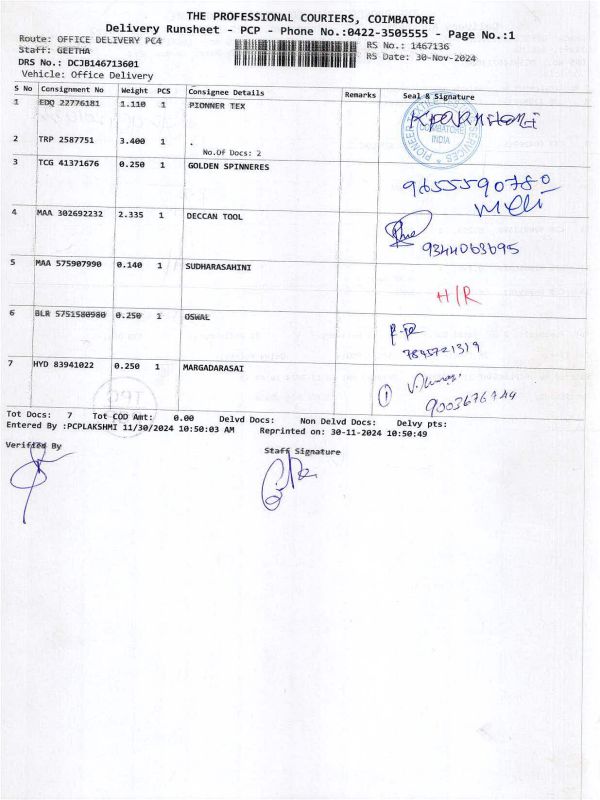 THE PROFESSIONAL COURIERS, COIMBATORE
Delivery Runsheet - PCP - Phone No.:0422-3505555 - Page No.:1
Route: OFFICE DELIVERY PC4 RS No.: 1467136
Staff: GEETHA RS Date: 30-Nov-2024
DRS No.: DCJB146713601
Vehicle: Office Delivery
S No Consignment No Weight PCS Consignee Details Remarks Seal & Signature
1 EDQ 22776181 1.110 1 PIONNER TEX
COIMBATORE
INDIA
2 TRP 2587751 3.400 1 .
No.Of Docs: 2
3 TCG 41371676 0.250 1 GOLDEN SPINNERES
9655590780
4 MAA 302692232 2.335 1 DECCAN TOOL
9344063695
5 MAA 575907990 0.140 1 SUDHARASAHINI
H/R
6 BLR 5751580980 0.250 1 OSWAL
7845721319
7 HYD 83941022 0.250 1 MARGADARASAI
1
Tot Docs: 7 Tot COD Amt: 0.00 Delvd Docs: Non Delvd Docs: Delvy pts:
Entered By :PCPLAKSHMI 11/30/2024 10:50:03 AM Reprinted on: 30-11-2024 10:50:49
Verified By Staff Signature